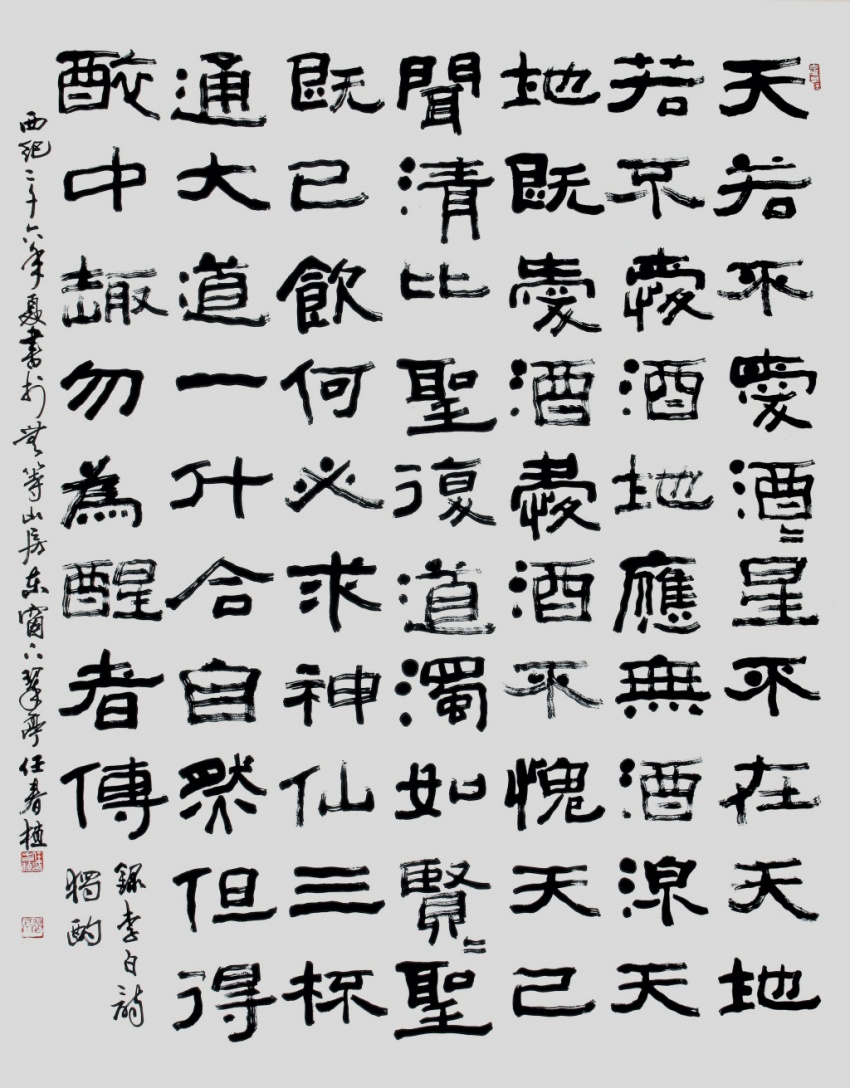 天若不愛酒〻星不在天地
若不愛酒地應無酒湶天
地既愛酒愛酒不愧天已
聞清比聖復道濁如賢〻聖
既已飲何必求神仙三杯
通大道一斗合自然但得
醉中趣勿為醒者傳
錄李白詩
獨酌
西紀二千六年夏書於無等山房東窗下翠亭任春植